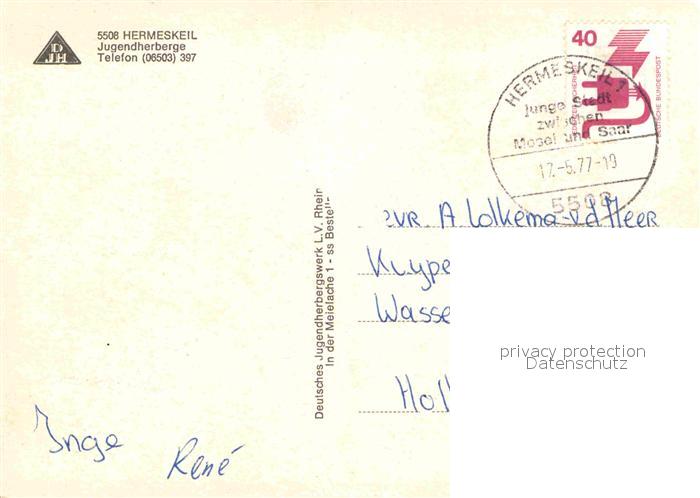 DJH
5508 HERMESKEIL
Jugendherberge
Telefon (06503) 397
40
DEUTSCHE BUNDESPOST
HERMESKEIL 1
Junge Stadt
zwischen
Mosel und Saar
17.-5.77-19
5508
Deutsches Jugendherbergswerk L.V. Rhein
In der Meielache 1 - ss Bestell-
A Lolkema-v.d Meer
Kuype
Wasse
Holl
privacy protection
Datenschutz
Inge
René